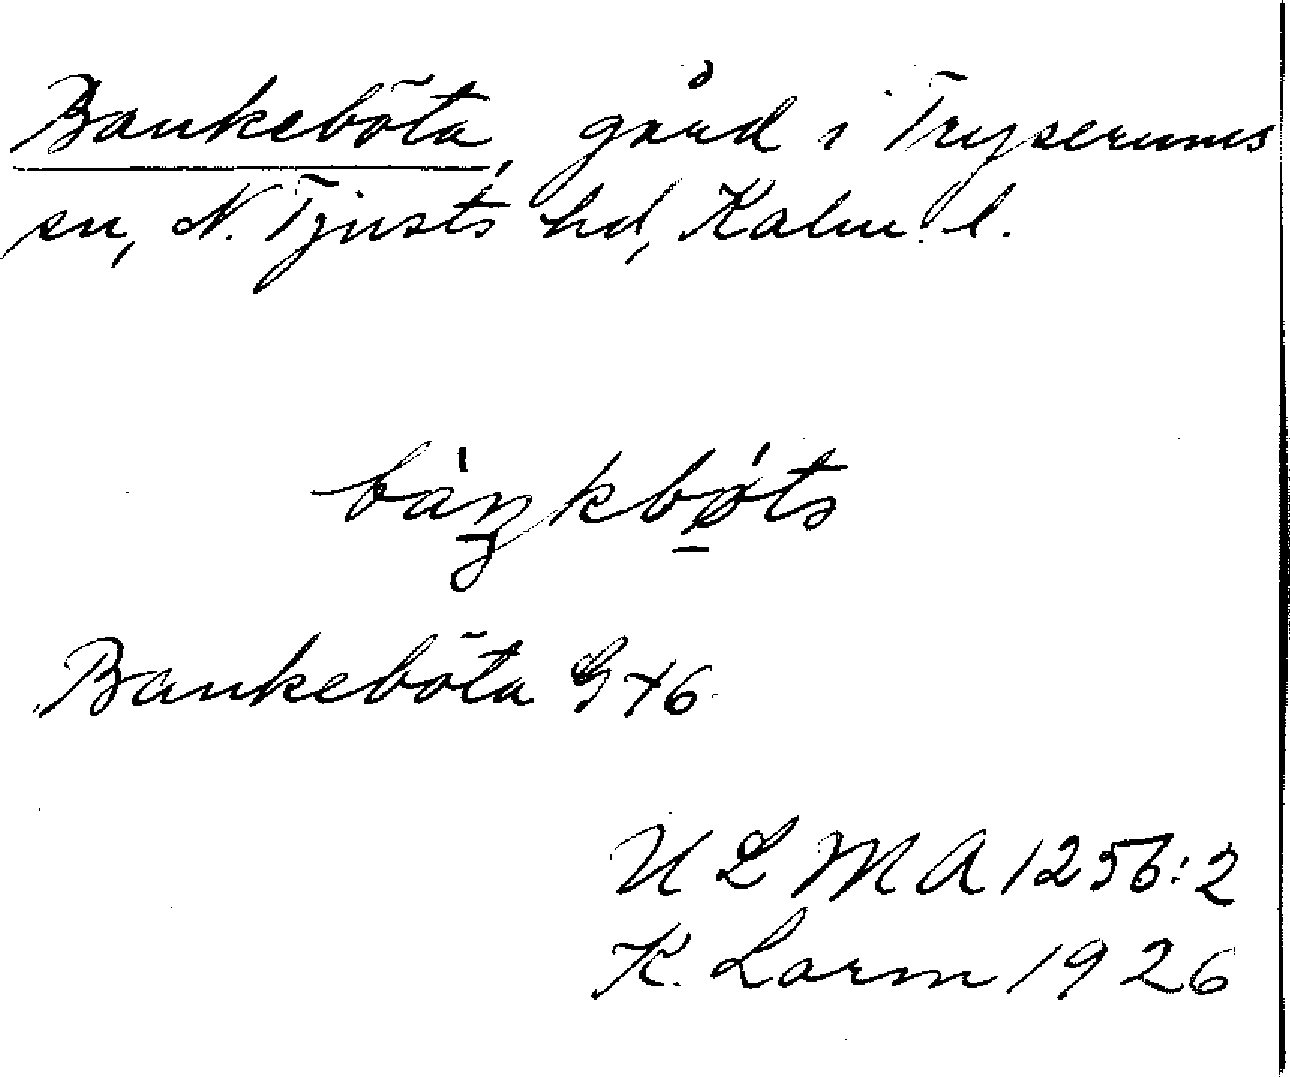 Bankeböta, gård i Tryserums
sn, N. Tjusts hd, Kalm. l.
bàŋkbø̀ts
Bankeböta G x6
ULMA 1256:2
K. Lorm 1926